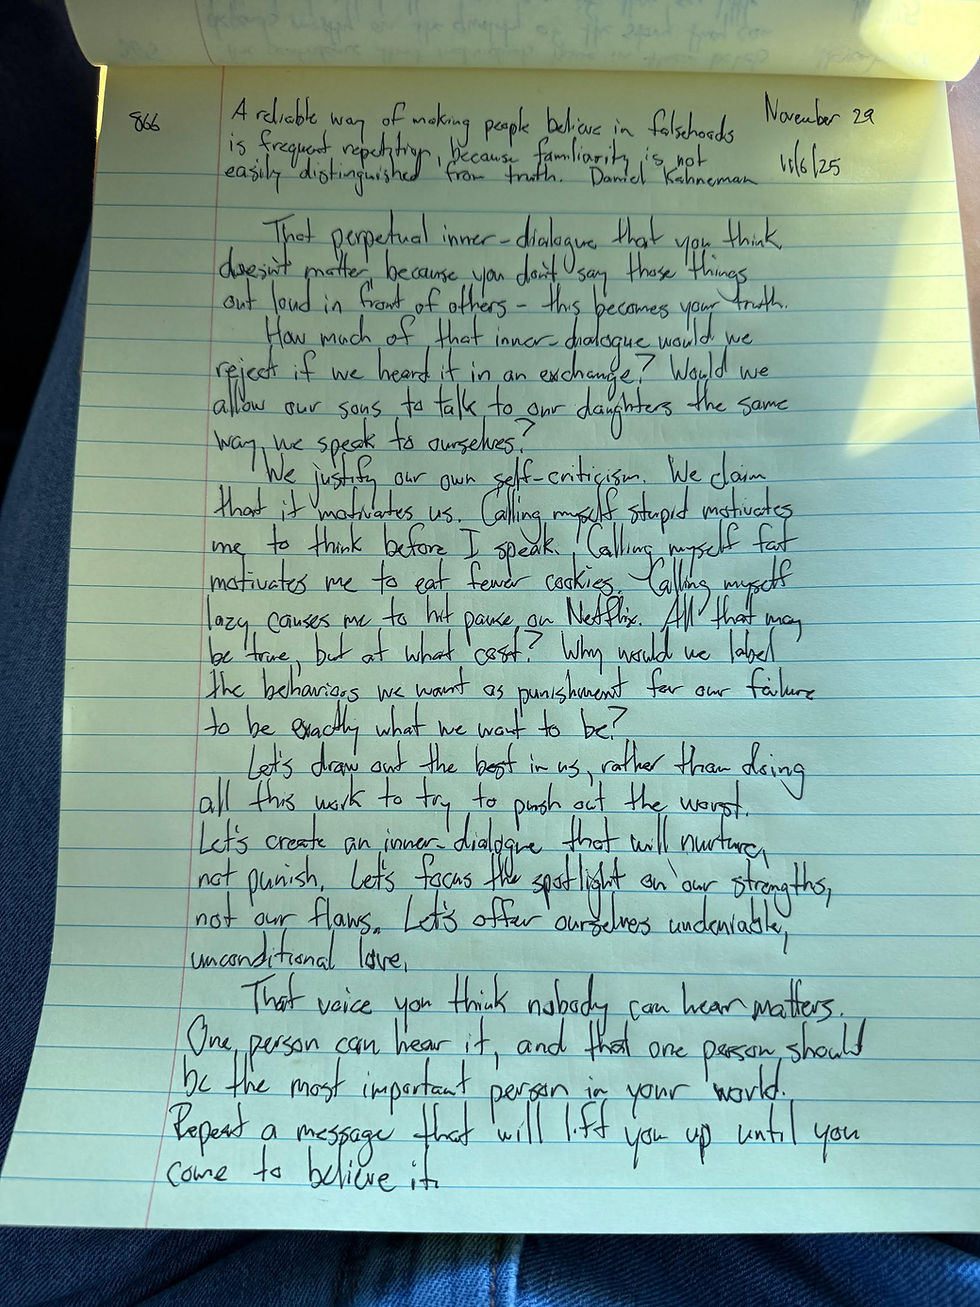 866
A reliable way of making people believe in falsehoods
is frequent repetition, because familiarity is not
easily distinguished from truth. Daniel Kahneman
November 29
11/6/25
That perpetual inner-dialogue that you think
doesn't matter, because you don't say those things
out loud in front of others - this becomes your truth.
How much of that inner-dialogue would we
reject if we heard it in an exchange? Would we
allow our sons to talk to our daughters the same
way we speak to ourselves?
We justify our own self-criticism. We claim
that it motivates us. Calling myself stupid motivates
me to think before I speak. Calling myself fat
motivates me to eat fewer cookies. Calling myself
lazy causes me to hit pause on Netflix. All that may
be true, but at what cost? Why would we label
the behaviors we want as punishment for our failure
to be exactly what we want to be?
Let's draw out the best in us, rather than doing
all this work to try to push out the worst.
Let's create an inner-dialogue that will nurture,
not punish. Let's focus the spotlight on our strengths,
not our flaws. Let's offer ourselves undeniable,
unconditional love.
That voice you think nobody can hear matters.
One person can hear it, and that one person should
be the most important person in your world.
Repeat a message that will lift you up until you
come to believe it.